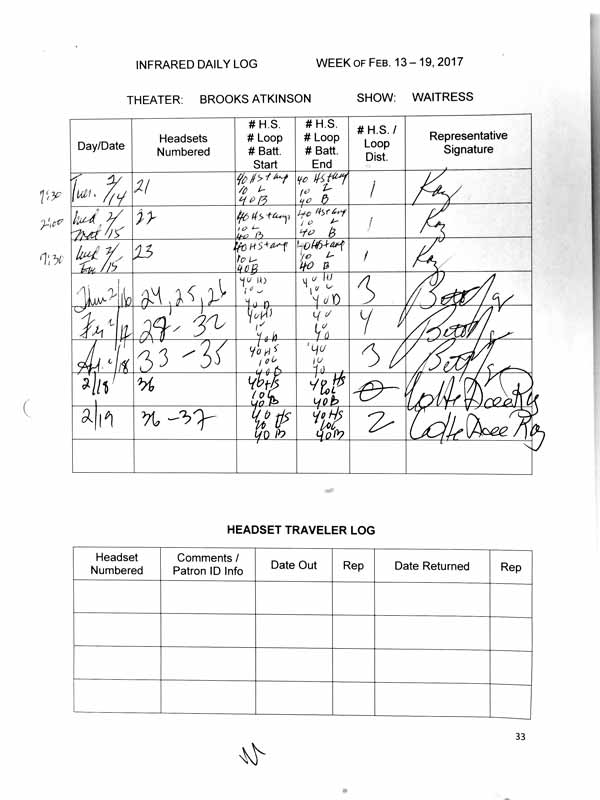 INFRARED DAILY LOG WEEK OF FEB. 13 – 19, 2017
THEATER: BROOKS ATKINSON SHOW: WAITRESS
Day/Date Headsets Numbered # H.S. # Loop # Batt. Start # H.S. # Loop # Batt. End # H.S. / Loop Dist. Representative Signature
7:30 Tues. 2/14 21 40 HS + amp 10 L 40 B 40 HS + amp 10 L 40 B 1 Ray
2:00 Wed Mat 2/15 22 40 HS + amp 10 L 40 B 40 HS + amp 10 L 40 B 1 Ray
7:30 Wed Eve 2/15 23 40 HS + amp 10 L 40 B 40 HS + amp 10 L 40 B 1 Ray
Thur 2/16 24, 25, 26 40 HS 10 L 40 B 40 10 40 B 3
Fri 2/17 28 - 32 40 HS 10 40 B 40 10 40 4
2/18 33 - 35 40 HS 10 L 40 B 40 10 40 3
2/18 36 40 HS 10 L 40 B 40 HS 10 L 40 B 0
2/19 36 - 37 40 HS 10 L 40 B 40 HS 10 L 40 B 2
HEADSET TRAVELER LOG
Headset Numbered Comments / Patron ID Info Date Out Rep Date Returned Rep
33